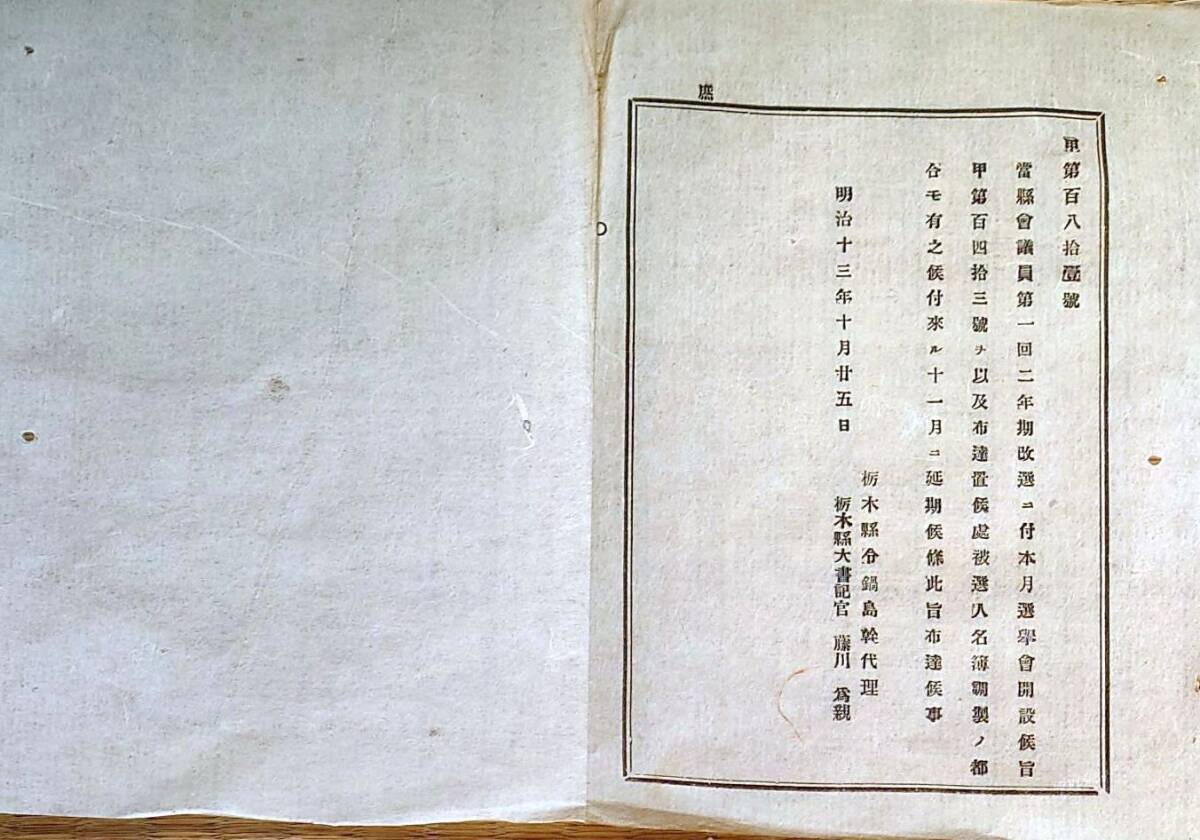 甲第百八拾壹號
當縣會議員第一回二年期改選ニ付本月選擧會開設候旨
甲第百四拾三號ヲ以及布達置候處被選人名簿調製ノ都
合モ有之候付來ル十一月ニ延期候條此旨布達候事
明治十三年十月廿五日
栃木縣令鍋島幹代理
栃木縣大書記官 藤川爲親
庶